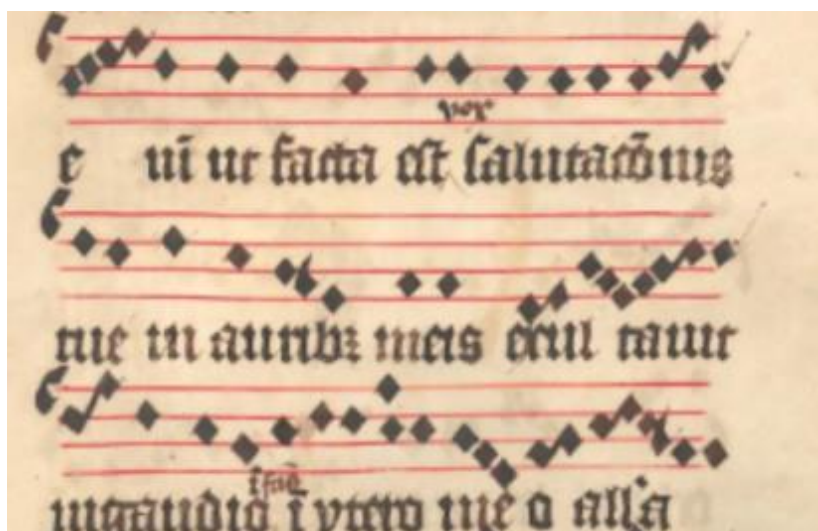 vox
e nī ut facta est salutacōnis
tue in auribꝫ meis exul tauit
īfās
ingaudio ī vtero meo all'a